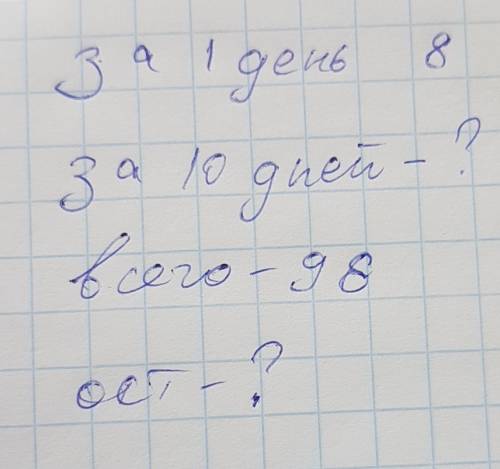 За 1 день 8
За 10 дней - ?
всего - 98
ост - ?